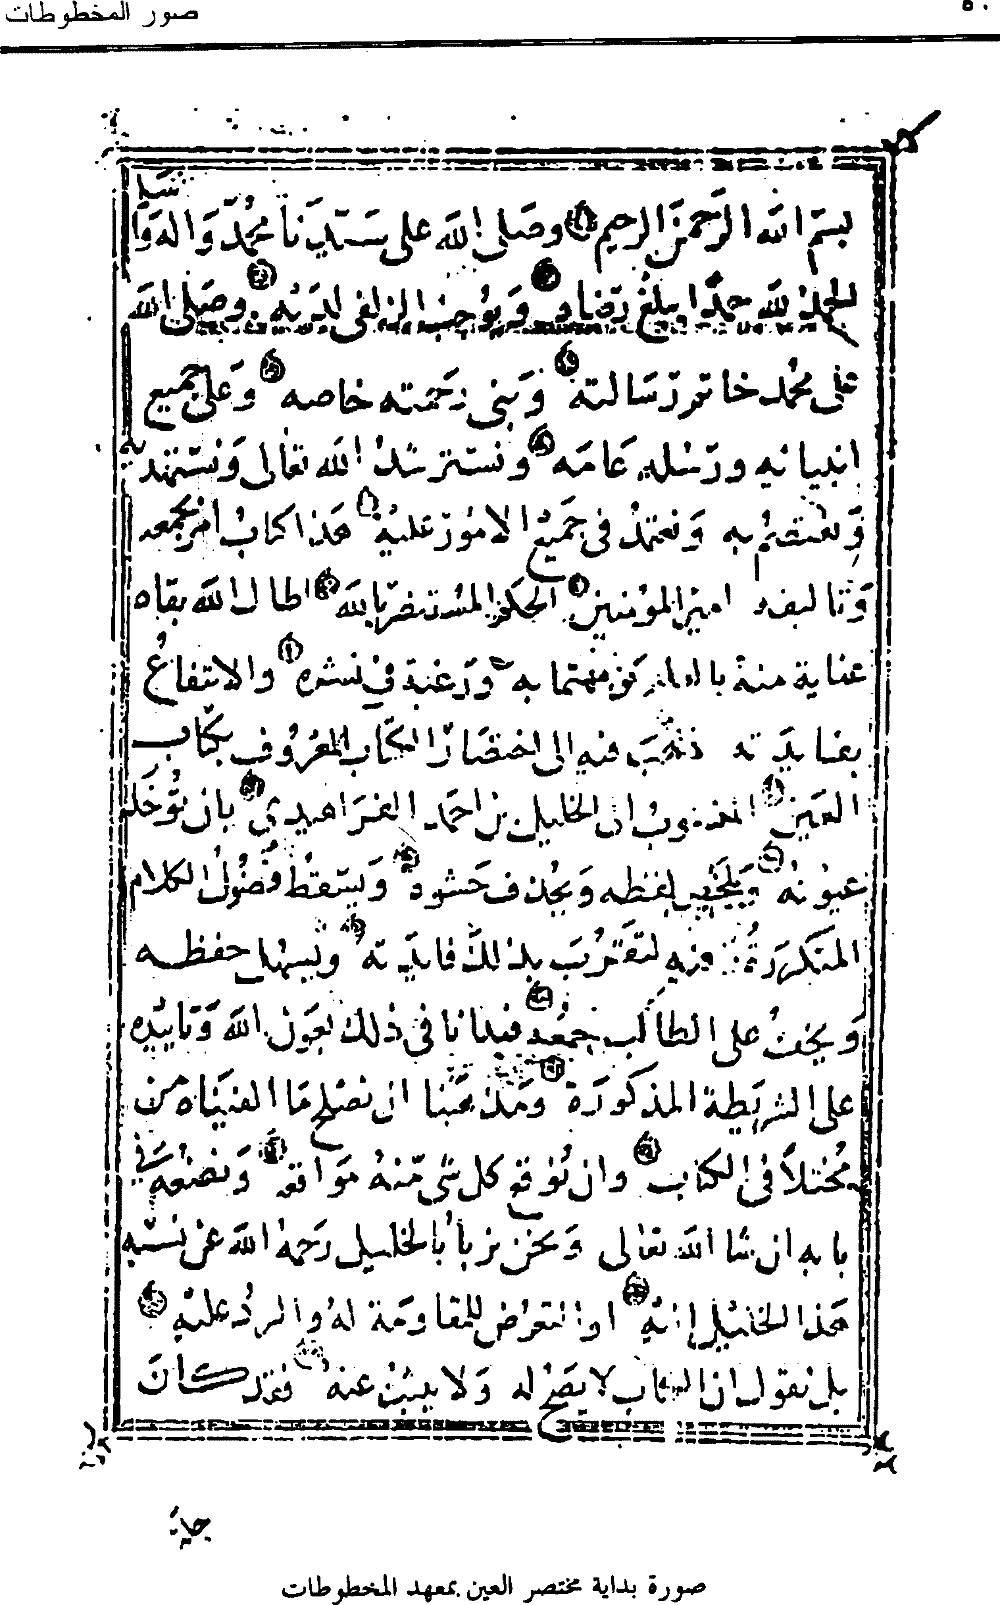 صور المخطوطات
٥٠
بسم الله الرحمن الرحيم وصلى الله على سيدنا محمد واله و
الحمد لله حمدا يبلغ رضاه ويوجب الزلفى لديه وصلى الله
على محمد خاتم رسالته ونبى رحمته خاصه وعلى جميع
انبيائه ورسله عامه ونسترشد الله تعالى ونستهديه
ونعتصم به ونعتمد فى جميع الامور عليه هذا كتاب امر بجمعه
وتاليفه امير المؤمنين الحكم المستنصر بالله اطال الله بقاه
عناية منه بالعلم وتهمما به ورغبة في نشره والانتفاع
بفايدته ذهب فيه الى اختصار الكتاب المعروف بكتاب
العين المنسوب الى الخليل بن احمد الفراهيدي بان توخذ
عيونه ويلخص لفظه ويحذف حشوه ويسقط فضول الكلام
المتكررة فيه لتقرب بذلك فايدته ويسهل حفظه
ويخف على الطالب جمعه فبدانا في ذلك بعون الله وتاييده
على الشريطة المذكورة ومذهبنا ان نصلح ما الفيناه من
مختلا في الكتاب وان نوقع كل شي منه مواقعه ونضعه في
بابه ان شا الله تعالى ونحن نربا بالخليل رحمه الله عن نسبه
هذا الخليل إليه او التعرض للمقاومة له والرد عليه
بل نقول ان الكتاب لا يصح له ولا يثبت عنه فقد كان
جله
صورة بداية مختصر العين بمعهد المخطوطات